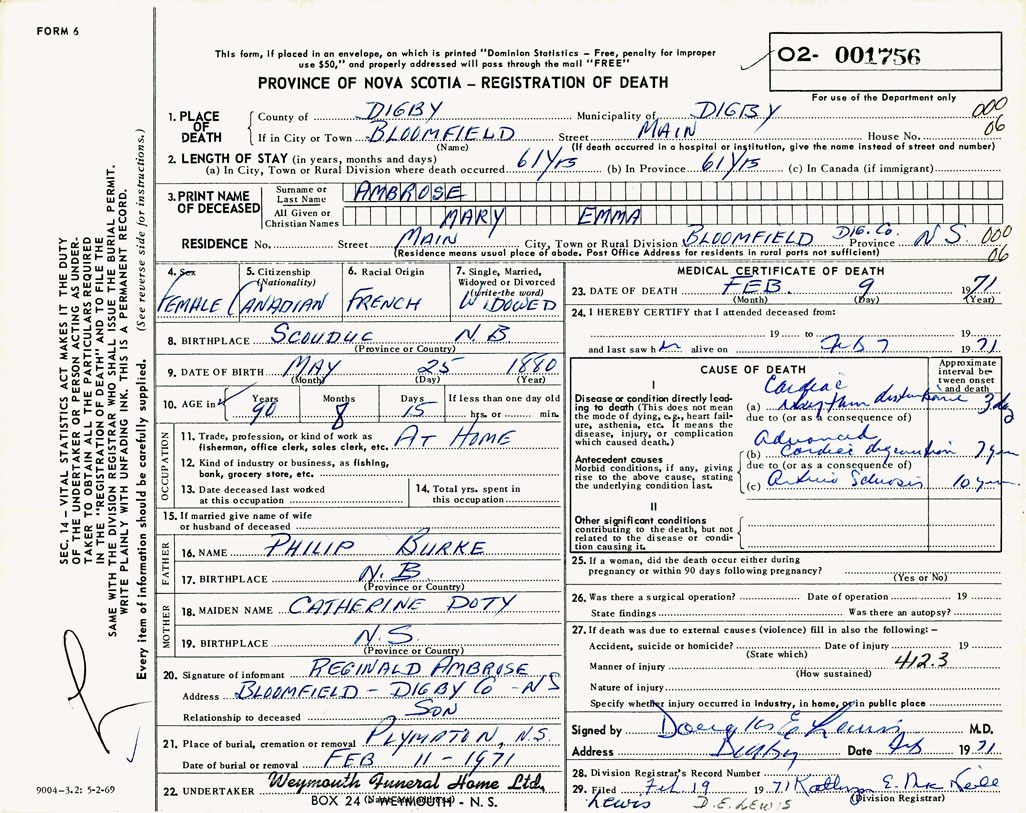 FORM 6
This form, if placed in an envelope, on which is printed "Dominion Statistics — Free, penalty for improper
use $50," and properly addressed will pass through the mail "FREE"
O2- 001756
For use of the Department only
PROVINCE OF NOVA SCOTIA — REGISTRATION OF DEATH
1. PLACE OF DEATH
County of DIGBY Municipality of DIGBY 000
If in City or Town BLOOMFIELD Street MAIN House No. 06
(Name) (If death occurred in a hospital or institution, give the name instead of street and number)
2. LENGTH OF STAY (in years, months and days)
(a) In City, Town or Rural Division where death occurred 61 Yrs (b) In Province 61 Yrs (c) In Canada (if immigrant)
3. PRINT NAME OF DECEASED
Surname or Last Name AMBROSE
All Given or Christian Names MARY EMMA
RESIDENCE No. Street MAIN City, Town or Rural Division BLOOMFIELD DIG. Co. Province N S. 000
(Residence means usual place of abode. Post Office Address for residents in rural parts not sufficient) 06
4. Sex
FEMALE
5. Citizenship
(Nationality)
CANADIAN
6. Racial Origin
FRENCH
7. Single, Married,
Widowed or Divorced
(write the word)
WIDOWED
8. BIRTHPLACE SCOUDUC N.B
(Province or Country)
9. DATE OF BIRTH MAY 25 1880
(Month) (Day) (Year)
10. AGE in Years 90 Months 8 Days 15 If less than one day old
hrs. or min.
OCCUPATION
11. Trade, profession, or kind of work as
fisherman, office clerk, sales clerk, etc. AT HOME
12. Kind of industry or business, as fishing,
bank, grocery store, etc.
13. Date deceased last worked
at this occupation
14. Total yrs. spent in
this occupation
15. If married give name of wife
or husband of deceased
FATHER
16. NAME PHILIP BURKE
17. BIRTHPLACE N.B.
(Province or Country)
MOTHER
18. MAIDEN NAME CATHERINE DOTY
19. BIRTHPLACE N.S.
(Province or Country)
20. Signature of informant REGINALD AMBROSE
Address BLOOMFIELD - DIGBY Co - N S
Relationship to deceased SON
21. Place of burial, cremation or removal PLYMPTON, N.S.
Date of burial or removal FEB 11 - 1971
22. UNDERTAKER Weymouth Funeral Home Ltd.,
BOX 24 WEYMOUTH - N. S.
MEDICAL CERTIFICATE OF DEATH
23. DATE OF DEATH FEB 9 1971
(Month) (Day) (Year)
24. I HEREBY CERTIFY that I attended deceased from:
19 to 19
and last saw h alive on Feb 7 1971
CAUSE OF DEATH
Approximate
interval be-
tween onset
and death
I
Disease or condition directly lead-
ing to death (This does not
mean the mode of dying, e.g., heart fail-
ure, asthenia, etc. It means the
disease, injury, or complication
which caused death.)
(a) Cardiac 3
due to (or as a consequence of)
Antecedent causes
Morbid conditions, if any, giving
rise to the above cause, stating
the underlying condition last.
(b) Advanced Cardiac
due to (or as a consequence of)
(c) Arterio Sclerosis 10
II
Other significant conditions
contributing to the death, but not
related to the disease or condi-
tion causing it.
25. If a woman, did the death occur either during
pregnancy or within 90 days following pregnancy?
(Yes or No)
26. Was there a surgical operation? Date of operation 19
State findings Was there an autopsy?
27. If death was due to external causes (violence) fill in also the following:—
Accident, suicide or homicide? Date of injury 19
(State which) 412.3
Manner of injury
(How sustained)
Nature of injury
Specify whether injury occurred in industry, in home, or in public place
Signed by Douglas E Lewis M.D.
Address Digby Date Feb 1971
28. Division Registrar's Record Number
29. Filed Feb 19 1971 E.
(Division Registrar)
Lewis D.E. LEWIS
SEC. 14 — VITAL STATISTICS ACT MAKES IT THE DUTY
OF THE UNDERTAKER OR PERSON ACTING AS UNDER-
TAKER TO OBTAIN ALL THE PARTICULARS REQUIRED
IN THE "REGISTRATION OF DEATH" AND TO FILE THE
SAME WITH THE DIVISION REGISTRAR WHO SHALL ISSUE THE BURIAL PERMIT.
WRITE PLAINLY WITH UNFADING INK. THIS IS A PERMANENT RECORD.
Every item of information should be carefully supplied. (See reverse side for instructions.)
9004-3.2: 5-2-69